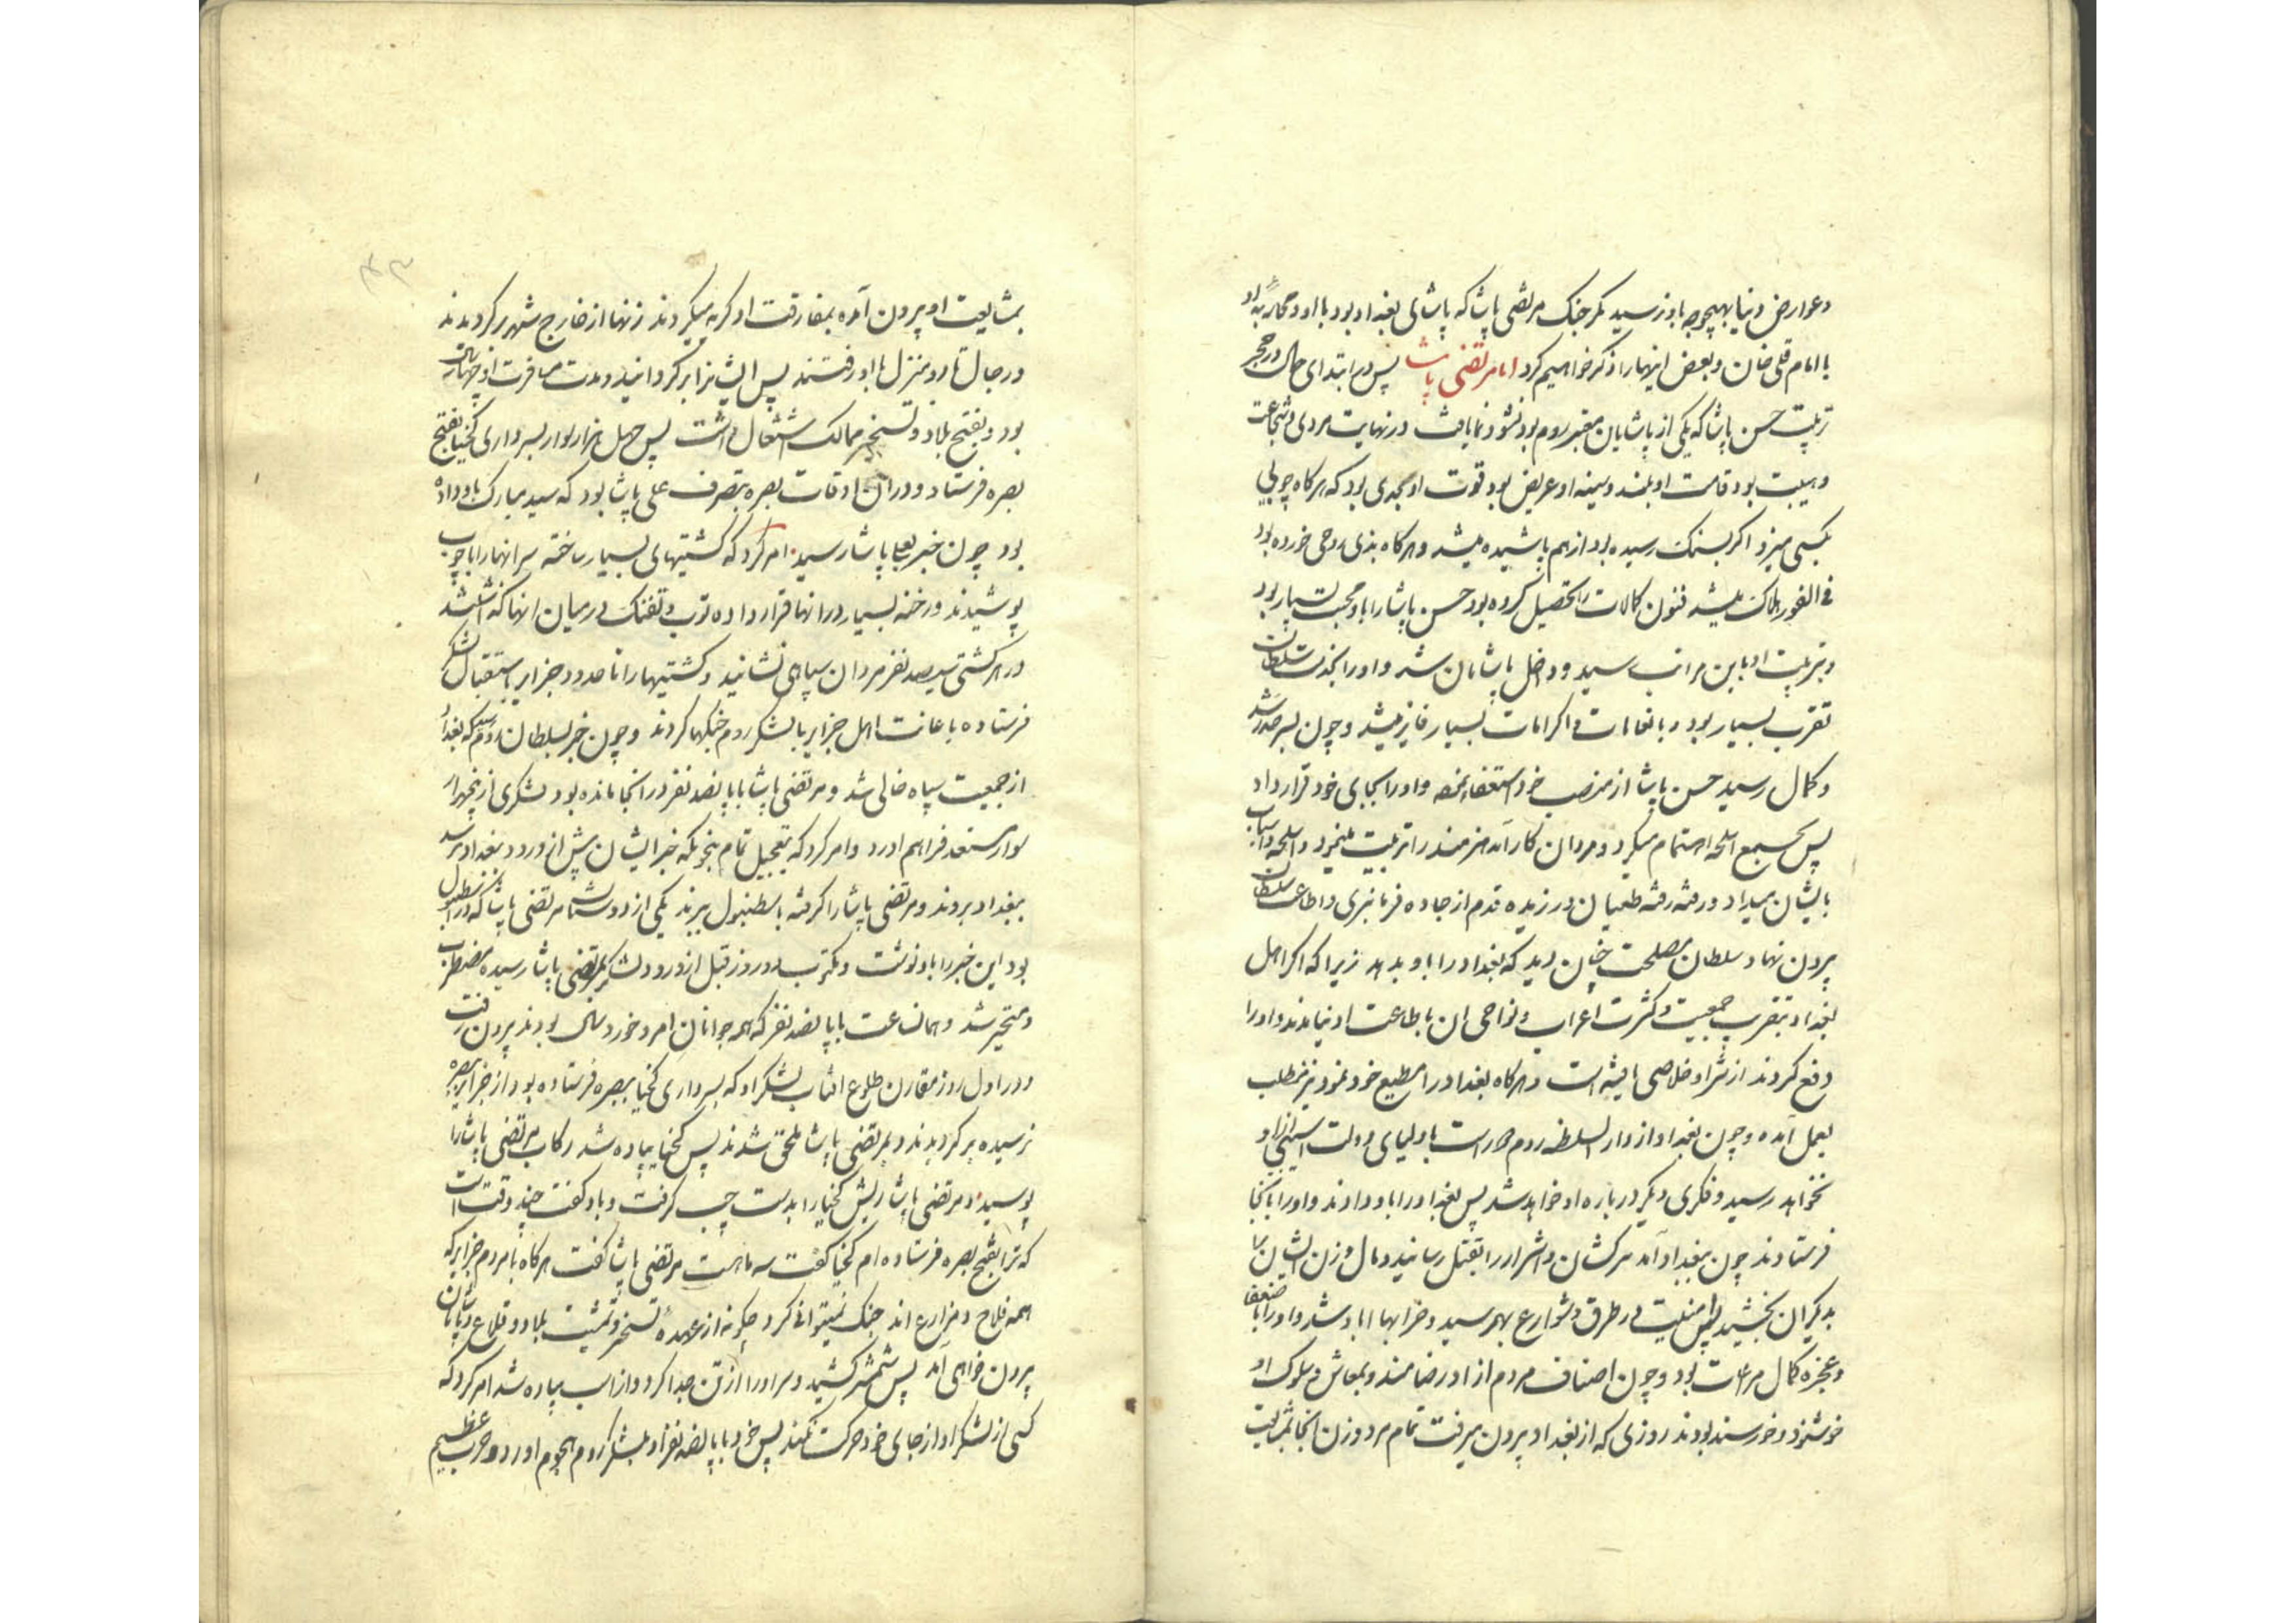 وعوارض دنیا بهیچوجه باو نرسید مکر جنک مرتضی پاشا که پاشای بغداد بود با او و محاربه او
با امام قلی خان و بعض اینهارا ذکر خواهیم کرد اما مرتضی پاشا پس در ابتدای حال در حجر
تربیت حسن پاشا که یکی از پاشایان معتبر روم بود نشو و نما یافت در نهایت مردی و شجاعت
و هیبت بود قامت او بلند و سینه او عریض بود قوت او بحدی بود که هرکاه چوبی
بکسی میزد اکر بسنک رسیده بود از هم پاشیده میشد و هرکاه بذی روحی خورده بود
فی الفور هلاک میشد فنون کمالات را تحصیل کرده بود حسن پاشا را با و محبت بسیار بود
و بتربیت او باین مراتب رسید و داخل پاشایان شد و او را بخدمت سلطان
تقرب بسیار بود و بانعامات و اکرامات بسیار فایز میشد و چون بسر حد رشد
و کمال رسید حسن پاشا از منصب خود استعفا نمود و او را بجای خود قرار داد
پس بجمع اسلحه اهتمام میکرد و مردان کارآمد هنرمند را تربیت مینمود و اسلحه و اسباب
بایشان میداد و رفته رفته طغیان ورزیده قدم از جاده فرمانبری و اطاعت سلطان
بیرون نهاد و سلطان مصلحت چنان دید که بغداد را باو بدهد زیرا که اکر اهل
بغداد بتقریب جمعیت و کثرت اعراب و نواحی ان باطاعت او نیامدند و او را
دفع کردند از شر او خلاصی یافته است و هرکاه بغداد را مطیع خود نمود نیز مطلب
بعمل آمده و چون بغداد از دار السلطنه روم دور است باولیای دولت اسیبی از او
نخواهد رسید و فکری دیکر در باره او خواهد شد پس بغداد را باو دادند و او را بانجا
فرستادند چون ببغداد آمد سرکشان و اشرار را بقتل رسانید و مال و زن ایشان را
بدیکران بخشید پس امنیت در طرق و شوارع بهم رسید و خرابها اباد شد و او را با ضعفا
و عجزه کمال مراعات بود و چون اصناف مردم از او رضامند و بمعاش و سلوک او
خوشنود و خورسند بودند روزی که از بغداد بیرون میرفت تمام مرد و زن انجا بمشایعت
بمشایعت او بیرون آمده بمفارقت او کریه میکردند زنها از خارج شهر برکردیدند
و رجال تا دو منزل با او رفتند پس ایشانرا برکردانید و مدت مسافرت او چهار سال
بود و بفتح بلاد و تسخیر ممالک اشتغال داشت پس چهل هزار سوار بسرداری کیخیا بفتح
بصره فرستاد و دران اوقات بصره بتصرف علی پاشا بود که سید مبارک باو داده
بود چون خبر بعلی پاشا رسید امر کرد که کشتیهای بسیار ساخته سر انها را با چوب
پوشیدند و رخنه بسیار در انها قرار داده توب و تفنک در میان انها کذاشتند
در هر کشتی سیصد نفر مردان سپاهی نشانید و کشتیها را تا حدود جزایر باستقبال لشکر
فرستاده باعانت اهل جزایر با لشکر روم جنکها کردند و چون خبر بسلطان روم رسید که بغداد
از جمعیت سپاه خالی شد و مرتضی پاشا با پانصد نفر در انجا مانده بود لشکری از پنجهزار
سوار مستعد فراهم اورد و امر کرد که بتعجیل تمام بنحویکه خبر ایشان پیش از ورود ببغداد نرسد
ببغداد بروند و مرتضی پاشا را کرفته باسطنبول ببرند یکی از دوستان مرتضی پاشا که در اسطنبول
بود این خبر را باو نوشت و مکتوب دو روز قبل از ورود لشکر بمرتضی پاشا رسیده مضطرب
و متحیر شد و همان ساعت با پانصد نفر که همه جوانان امرد خورد سال بودند بیرون رفت
و در اول روز مقارن طلوع افتاب لشکر او که بسرداری کیخیا ببصره فرستاده بود از جزایر ببصره
نرسیده برکردیدند و بمرتضی پاشا ملحق شدند پس کیخیا پیاده شد رکاب مرتضی پاشا را
بوسید و مرتضی پاشا ریش کیخیا را بدست چپ کرفت و باو کفت چند وقت است
که ترا بفتح بصره فرستاده ام کیخیا کفت سه ماهست مرتضی پاشا کفت هرکاه با مردم جزایر که
همه فلاح و مزارع اند جنک نمیتوانی کرد چکونه از عهده تسخیر و تمشیت بلاد و قلاع
بیرون خواهی آمد پس شمشیر کشید و سر او را از تن جدا کرد و از اسب پیاده شد امر کرد که
کسی از لشکر او از جای خود حرکت نکند پس خود با پانصد نفر او بلشکر روم هجوم اورد و حرب عظیم